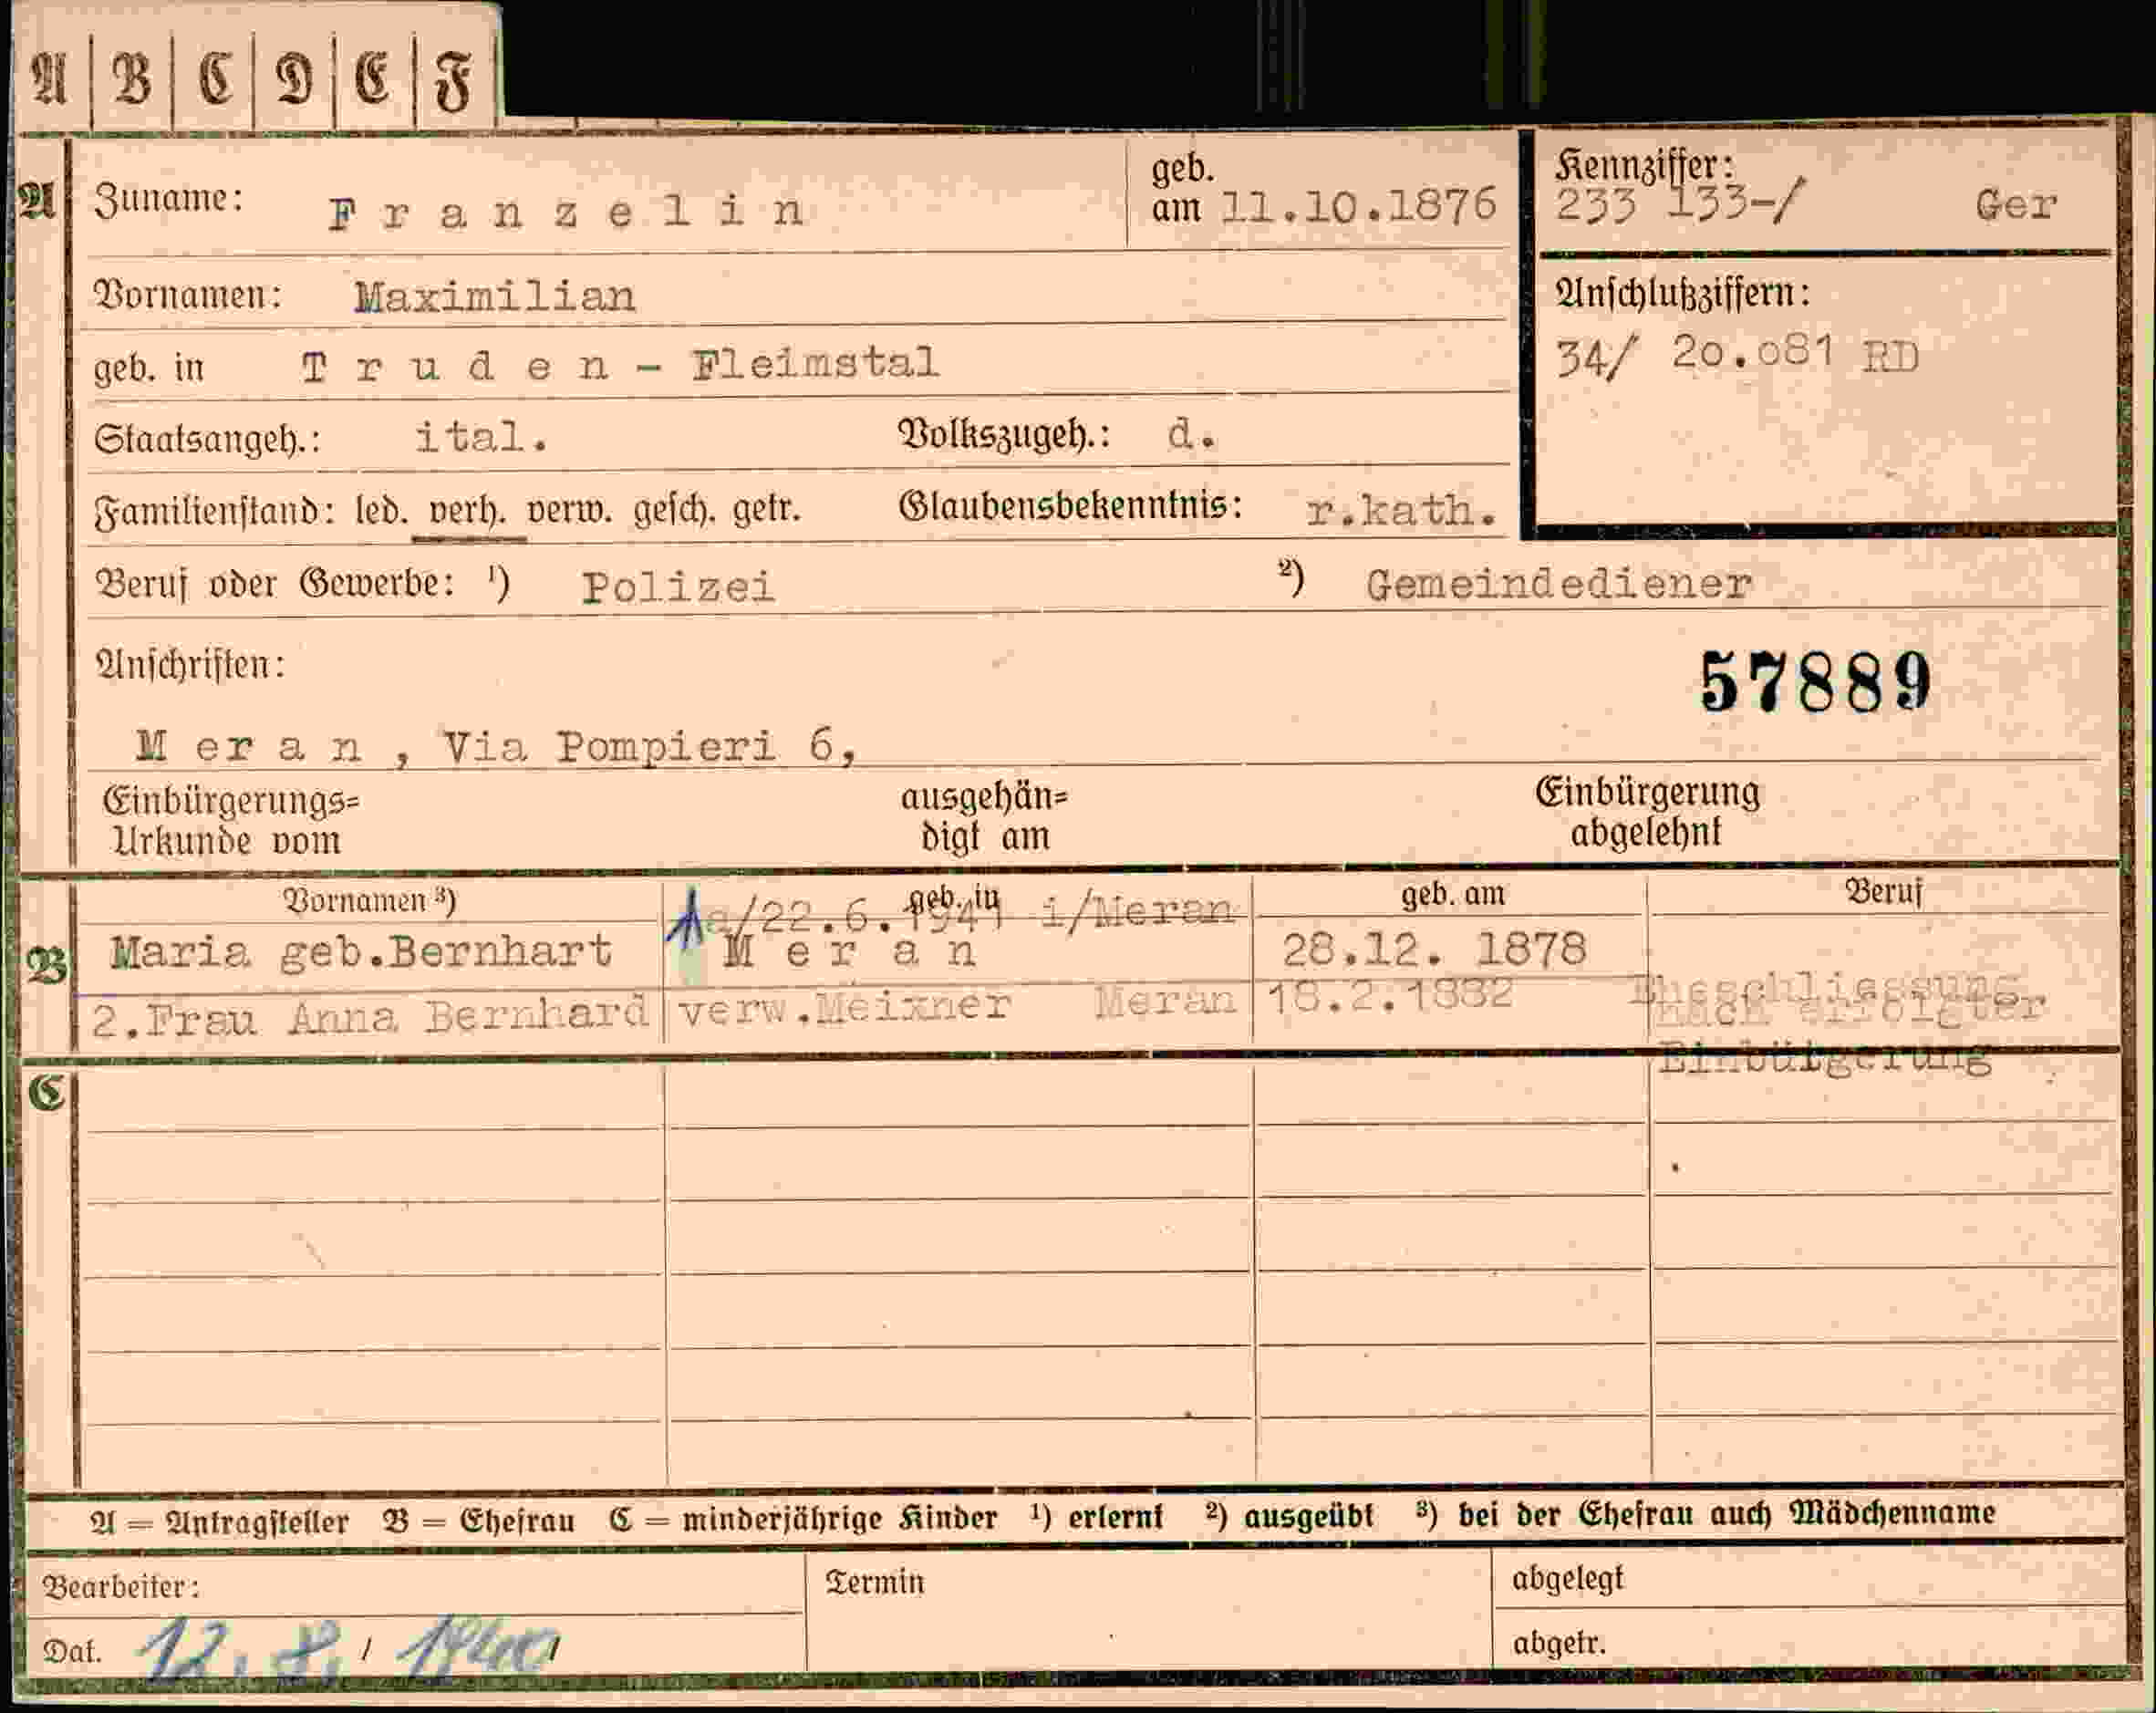 A B C D E F
A Zuname: Franzelin geb. am 11.10.1876 Kennziffer: 233 133-/ Ger
Vornamen: Maximilian Anschlußziffern:
geb. in Truden - Fleimstal 34/ 20.081 RD
Staatsangeh.: ital. Volkszugeh.: d.
Familienstand: led. verh. verw. gesch. getr. Glaubensbekenntnis: r.kath.
Beruf oder Gewerbe: 1) Polizei 2) Gemeindediener
Anschriften: 57889
Meran, Via Pompieri 6,
Einbürgerungs= ausgehän= Einbürgerung
Urkunde vom digt am abgelehnt
Vornamen 3) geb. in geb. am Beruf
/22.6.1941 i/Meran
B Maria geb.Bernhart Meran 28.12. 1878
2.Frau Anna Bernhard verw.Meixner Meran 18.2.1882 Eheschliessung
nach erfolgter
Einbürgerung
C
A = Antragsteller B = Ehefrau C = minderjährige Kinder 1) erlernt 2) ausgeübt 3) bei der Ehefrau auch Mädchenname
Bearbeiter: Termin abgelegt
Dat. 12. 8. 1940 abgetr.